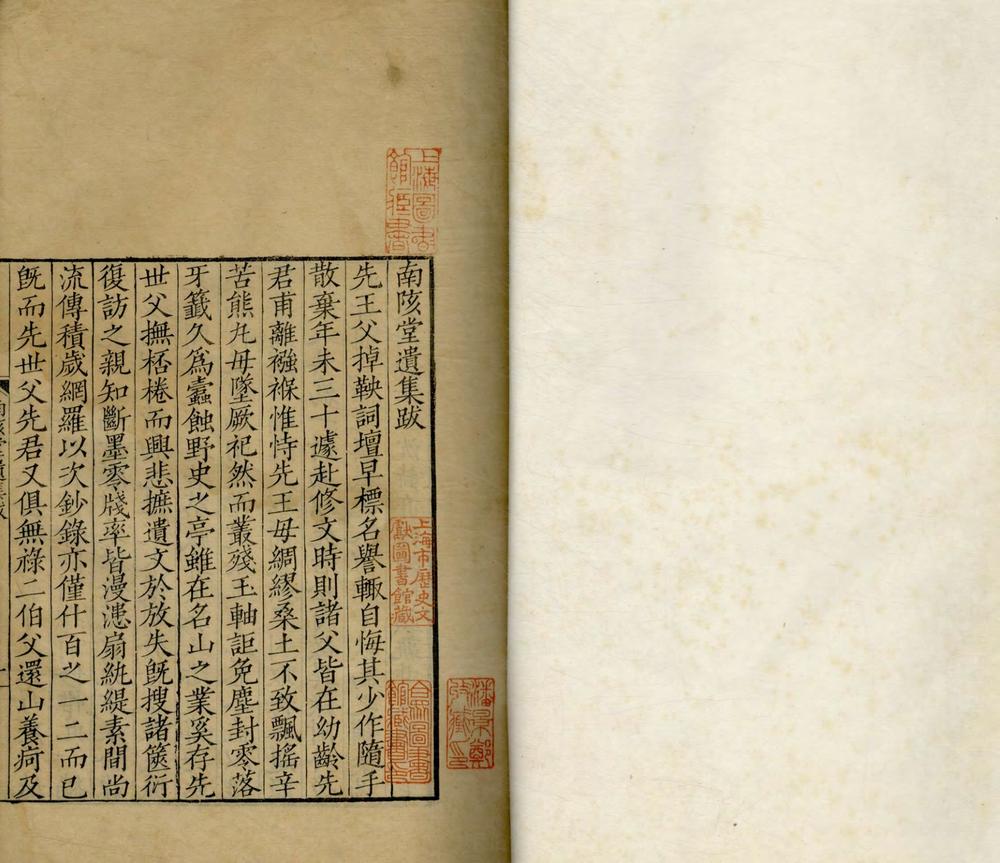 南陔堂遺集跋
先王父掉鞅詞壇早標名譽輙自悔其少作隨手
散棄年未三十遽赴修文時則諸父皆在幼齡先
君甫離襁褓惟恃先王母綢繆桑土不致飄搖辛
苦熊丸毋墜厥祀然而叢殘玉軸詎免塵封零落
牙籤久爲蠹蝕野史之亭雖在名山之業奚存先
世父撫桮棬而興悲摭遺文於放失旣搜諸篋衍
復訪之親知斷墨零牋率皆漫漶扇紈緹素間尚
流傳積歲網羅以次鈔錄亦僅什百之一二而已
旣而先世父先君又俱無祿二伯父還山養疴及
上海圖書館藏書
上海市歷史文獻圖書館藏
合眾圖書館藏書印
潘景鄭